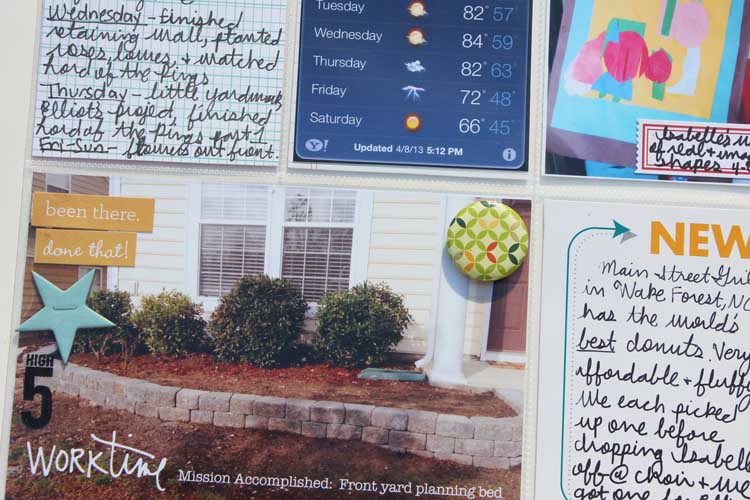 Wednesday - finished
retaining wall, planted
roses, limes, + watched
Lord of the Rings
Thursday - little yardwork,
Elliot's project, finished
Lord of the Rings part 1
Fri-Sun - flowers out front.
Tuesday 82° 57°
Wednesday 84° 59°
Thursday 82° 63°
Friday 72° 48°
Saturday 66° 45°
Y! Updated 4/8/13 5:12 PM i
Isabelle's
of red +
shapes
been there.
done that!
HIGH
5
WORKtime
Mission Accomplished: Front yard planning bed
NEW
Main Street Grill
in Wake Forest, NC
has the world's
best donuts. Very
affordable + fluffy
We each picked
up one before
dropping Isabell
off @ choir + we
got one